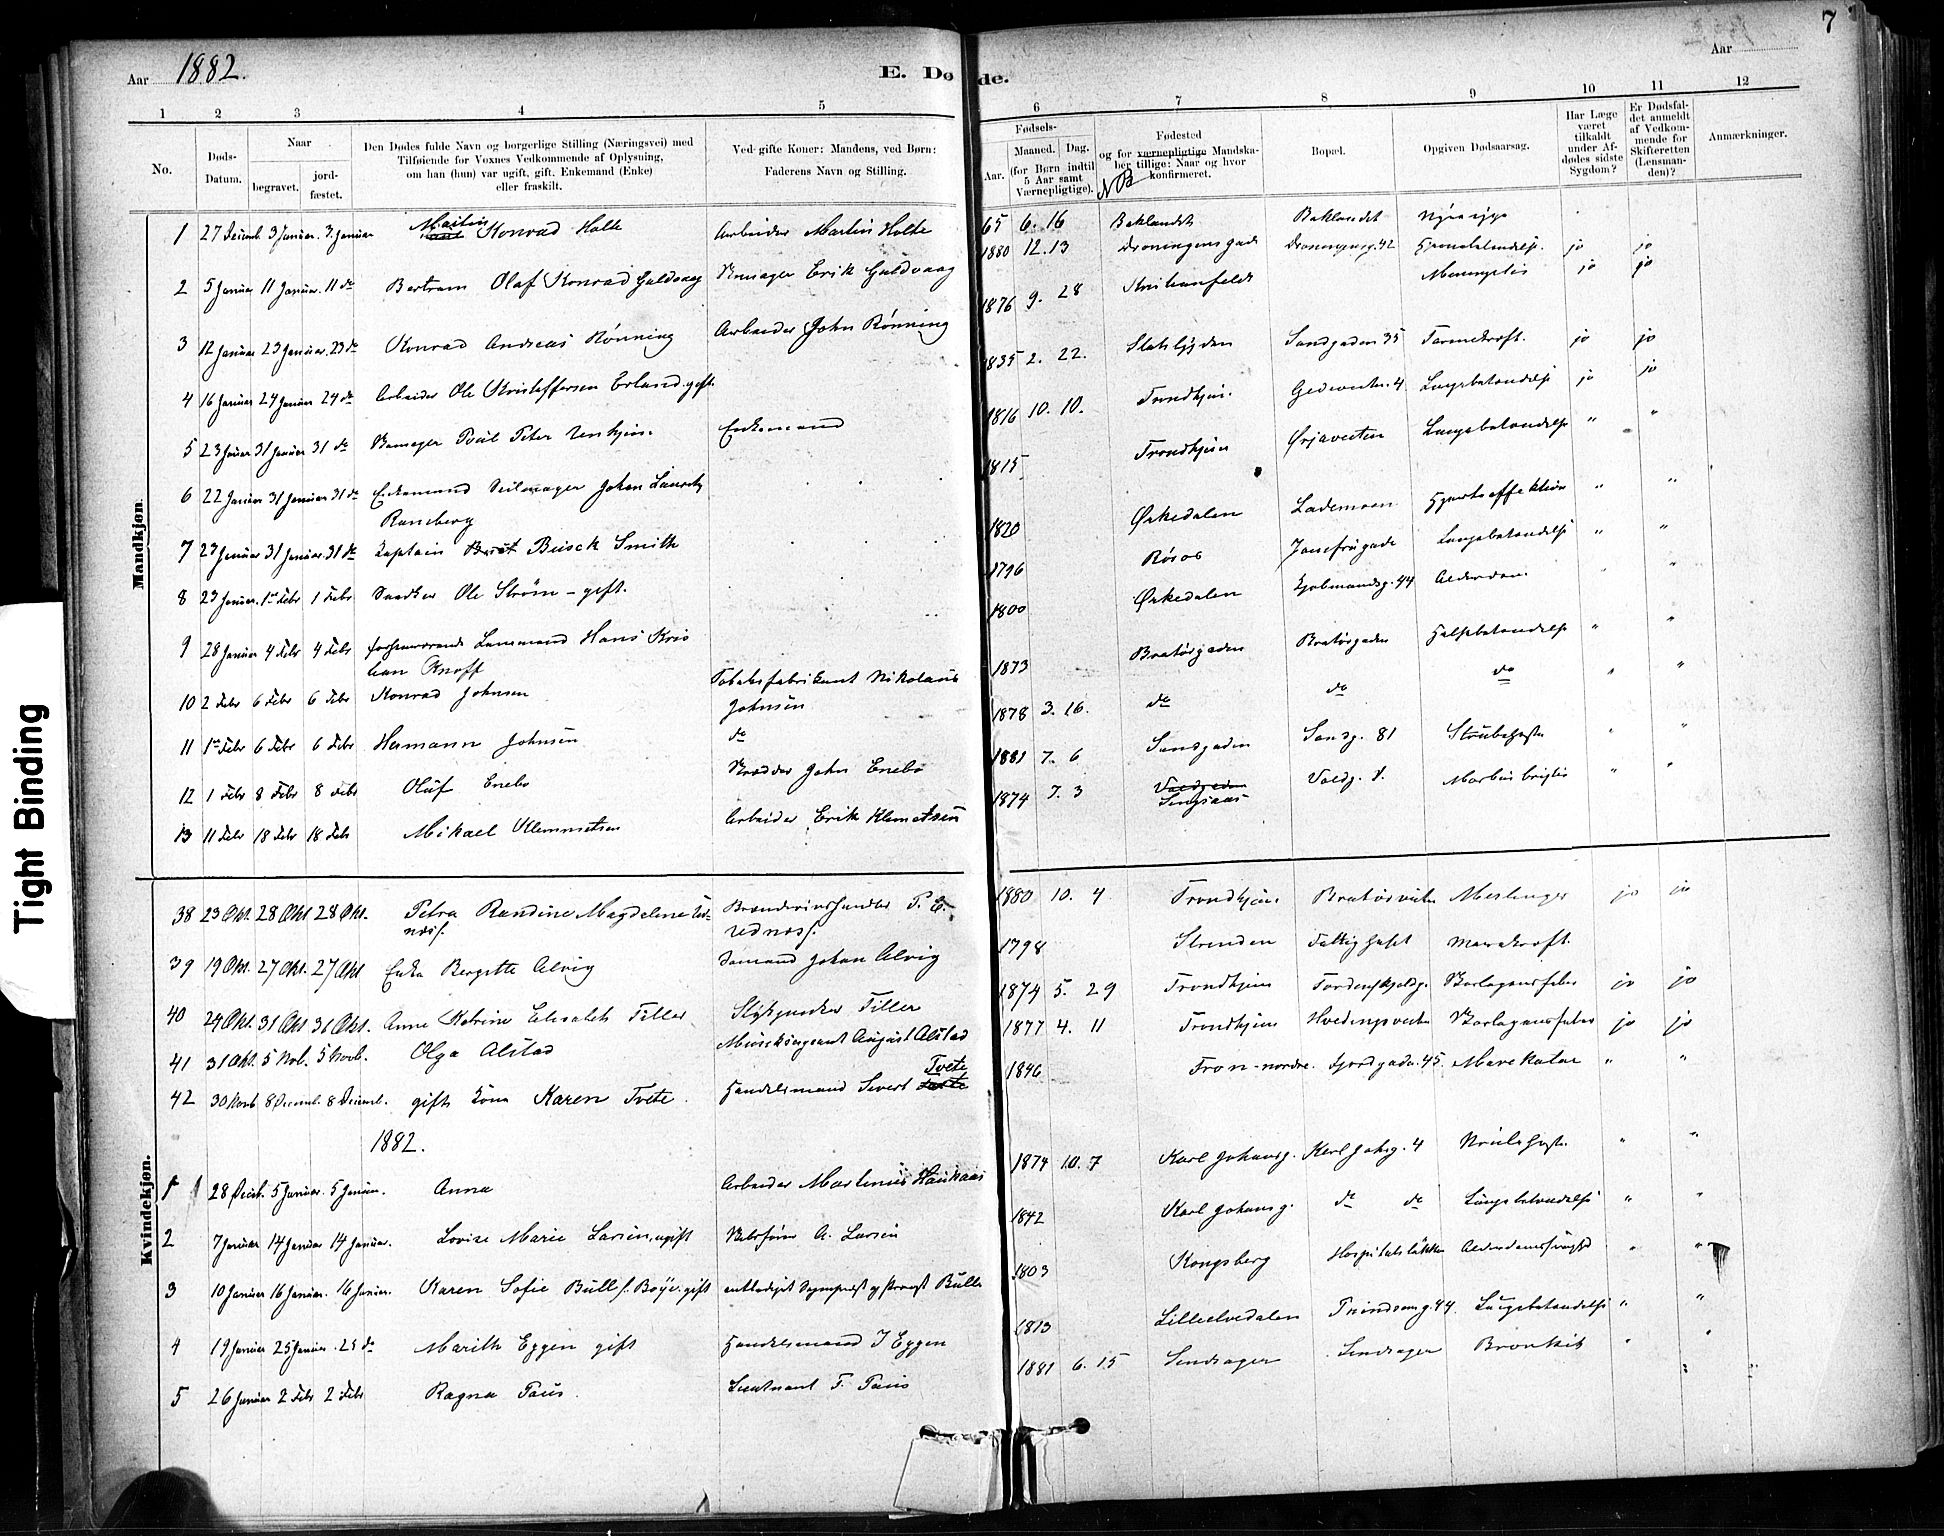 7
Aar 1882.
E. Dø de.
Aar
1 2 3 4 5 6 7 8 9 10 11 12
No.
Døds-Datum.
Naar
begravet.
jord-fæstet.
Den Dødes fulde Navn og borgerlige Stilling (Næringsvei) med
Tilføiende for Voxnes Vedkommende af Oplysning,
om han (hun) var ugift, gift, Enkemand (Enke)
eller fraskilt.
Ved gifte Koner: Mandens, ved Børn:
Faderens Navn og Stilling.
Fødsels-
Aar.
Maaned. Dag.
(for Børn indtil
5 Aar samt
Værnepligtige).
Fødested
og for værnepligtige Mandska-
ber tillige: Naar og hvor
konfirmeret.
NB
Bopæl.
Opgiven Dødsaarsag.
Har Læge
været
tilkaldt
under Af-
dødes sidste
Sygdom?
Er Dødsfal-
det anmeldt
af Vedkom-
mende for
Skifteretten
(Lensman-
den)?
Anmærkninger.
Mandkjøn.
1 27 Decemb. 3 Januar. 3. Januar Martin Konrad Holte Arbeider Martin Holte 65 6. 16 Baklandet Baklandet
2 5 Januar 11 Januar. 11 do Bertram Olaf Konrad Guldvaag Erik Guldvaag 1880 12. 13 Dronningensgade Dronningensg. 42 jo jo
3 12 Januar 23 Januar. 23 do Konrad Andreas Rønning Arbeider John Rønning 1876 9. 28 jo jo
4 16 Januar 24 Januar 24 do Arbeider Ole Kristoffersen Erland. gift. 1835 2. 22. Sandgaden 35 jo jo
5 23 Januar 31 Januar 31 do Peter Enkemand 1816 10. 10. Trondhjem. Lungebetændelse jo jo
6 22 Januar 31 Januar 31 do Enkemand Seilmager Johan Lauritz
Ramberg 1815 Trondhjem Lungebetændelse " "
7 23 Januar 31 Januar 31 do Kaptain Busck Smith 1820 Ørkedalen Lademoen Hjerteaffektion " "
8 23 Januar. 1ste Febr 1 Febr Ole Strøm - gift. 1796 Røros Jomfrugade Lungebetændelse " "
9 28 Januar 4 Febr 4 Febr forhenværende Lensmand Hans Kris
tian Knoff 1800 Ørkedalen Kjøbmandsg. 44 Alderdom "
10 2 Febr 6 Febr 6 Febr Konrad Johnsen Tobaksfabrikant Nikolaus
Johnsen 1873 Bratørgaden Bratørgaden Halsbetændelse " "
11 1ste Febr 6 Febr 6 Febr Hermann Johnsen do 1878 3. 16. do do do " "
12 1 Febr 8 Febr 8 Febr Oluf Enebo John Enebo 1881 7. 6 Sandgaden Sandg. 81 Strubehoste " "
13 11 Febr 18 Febr 18 Febr Mikael Klemmetsen Arbeider Erik Klemetsen 1874 7. 3 Singsaas Morbus brigtii " "
Kvindekjøn.
38 23 Okt. 28 Okt 28 Okt. Petra Randine Magdalene 1880 10. 4 Trondhjem jo jo
39 19 Okt. 27 Okt. 27 Okt Enke Bergitte Alvig Sømand Johan Alvig 1798 Strinden Fattighuset Marekraft.
40 24 Okt. 31 Okt 31 Okt. Anne Katrine Elisabeth Tiller Tiller 1874 5. 29 Trondhjem Tordenskjoldg. jo jo
41 31 Okt. 5 Novb. 5 Novb. Olga Alstad August Alstad 1877 4. 11 Trondhjem jo jo
42 30 Novb 8 Decemb. 8 Decemb. gift Kone Karen Tvete. Handelsmand Sivert Tvete 1846 Fron - nordre. Fjordgaden. 45. Mavekatar " "
1882.
1 28 Decbr. 5 Januar. 5 Januar. Anna Arbeider Martinus Haukaas 1874 10. 7 Karl Johansg. Karl Johsg. 4 " "
2 7 Januar 14 Januar 14 Januar. Lovise Marie Larsen, ugift A. Larsen 1842 Karl Johansg. do do Lungebetændelse " "
3 10 Januar 16 Januar. 16 Januar. Karen Sofie Bull f. Boye. gift Sognepræst og Provst Bull 1803 Kongsberg Hospitalsløkken Alderdomssvaghed " "
4 19 Januar 25 Januar. 25 do Marith Eggen gift Handelsmand J Eggen 1813 Lilleelvedalen Lungebetændelse " "
5 26 Januar 2 Febr 2 Febr Ragna Paus. Lieutnant F. Paus 1881 6. 15 Bronkit " "
Tight Binding